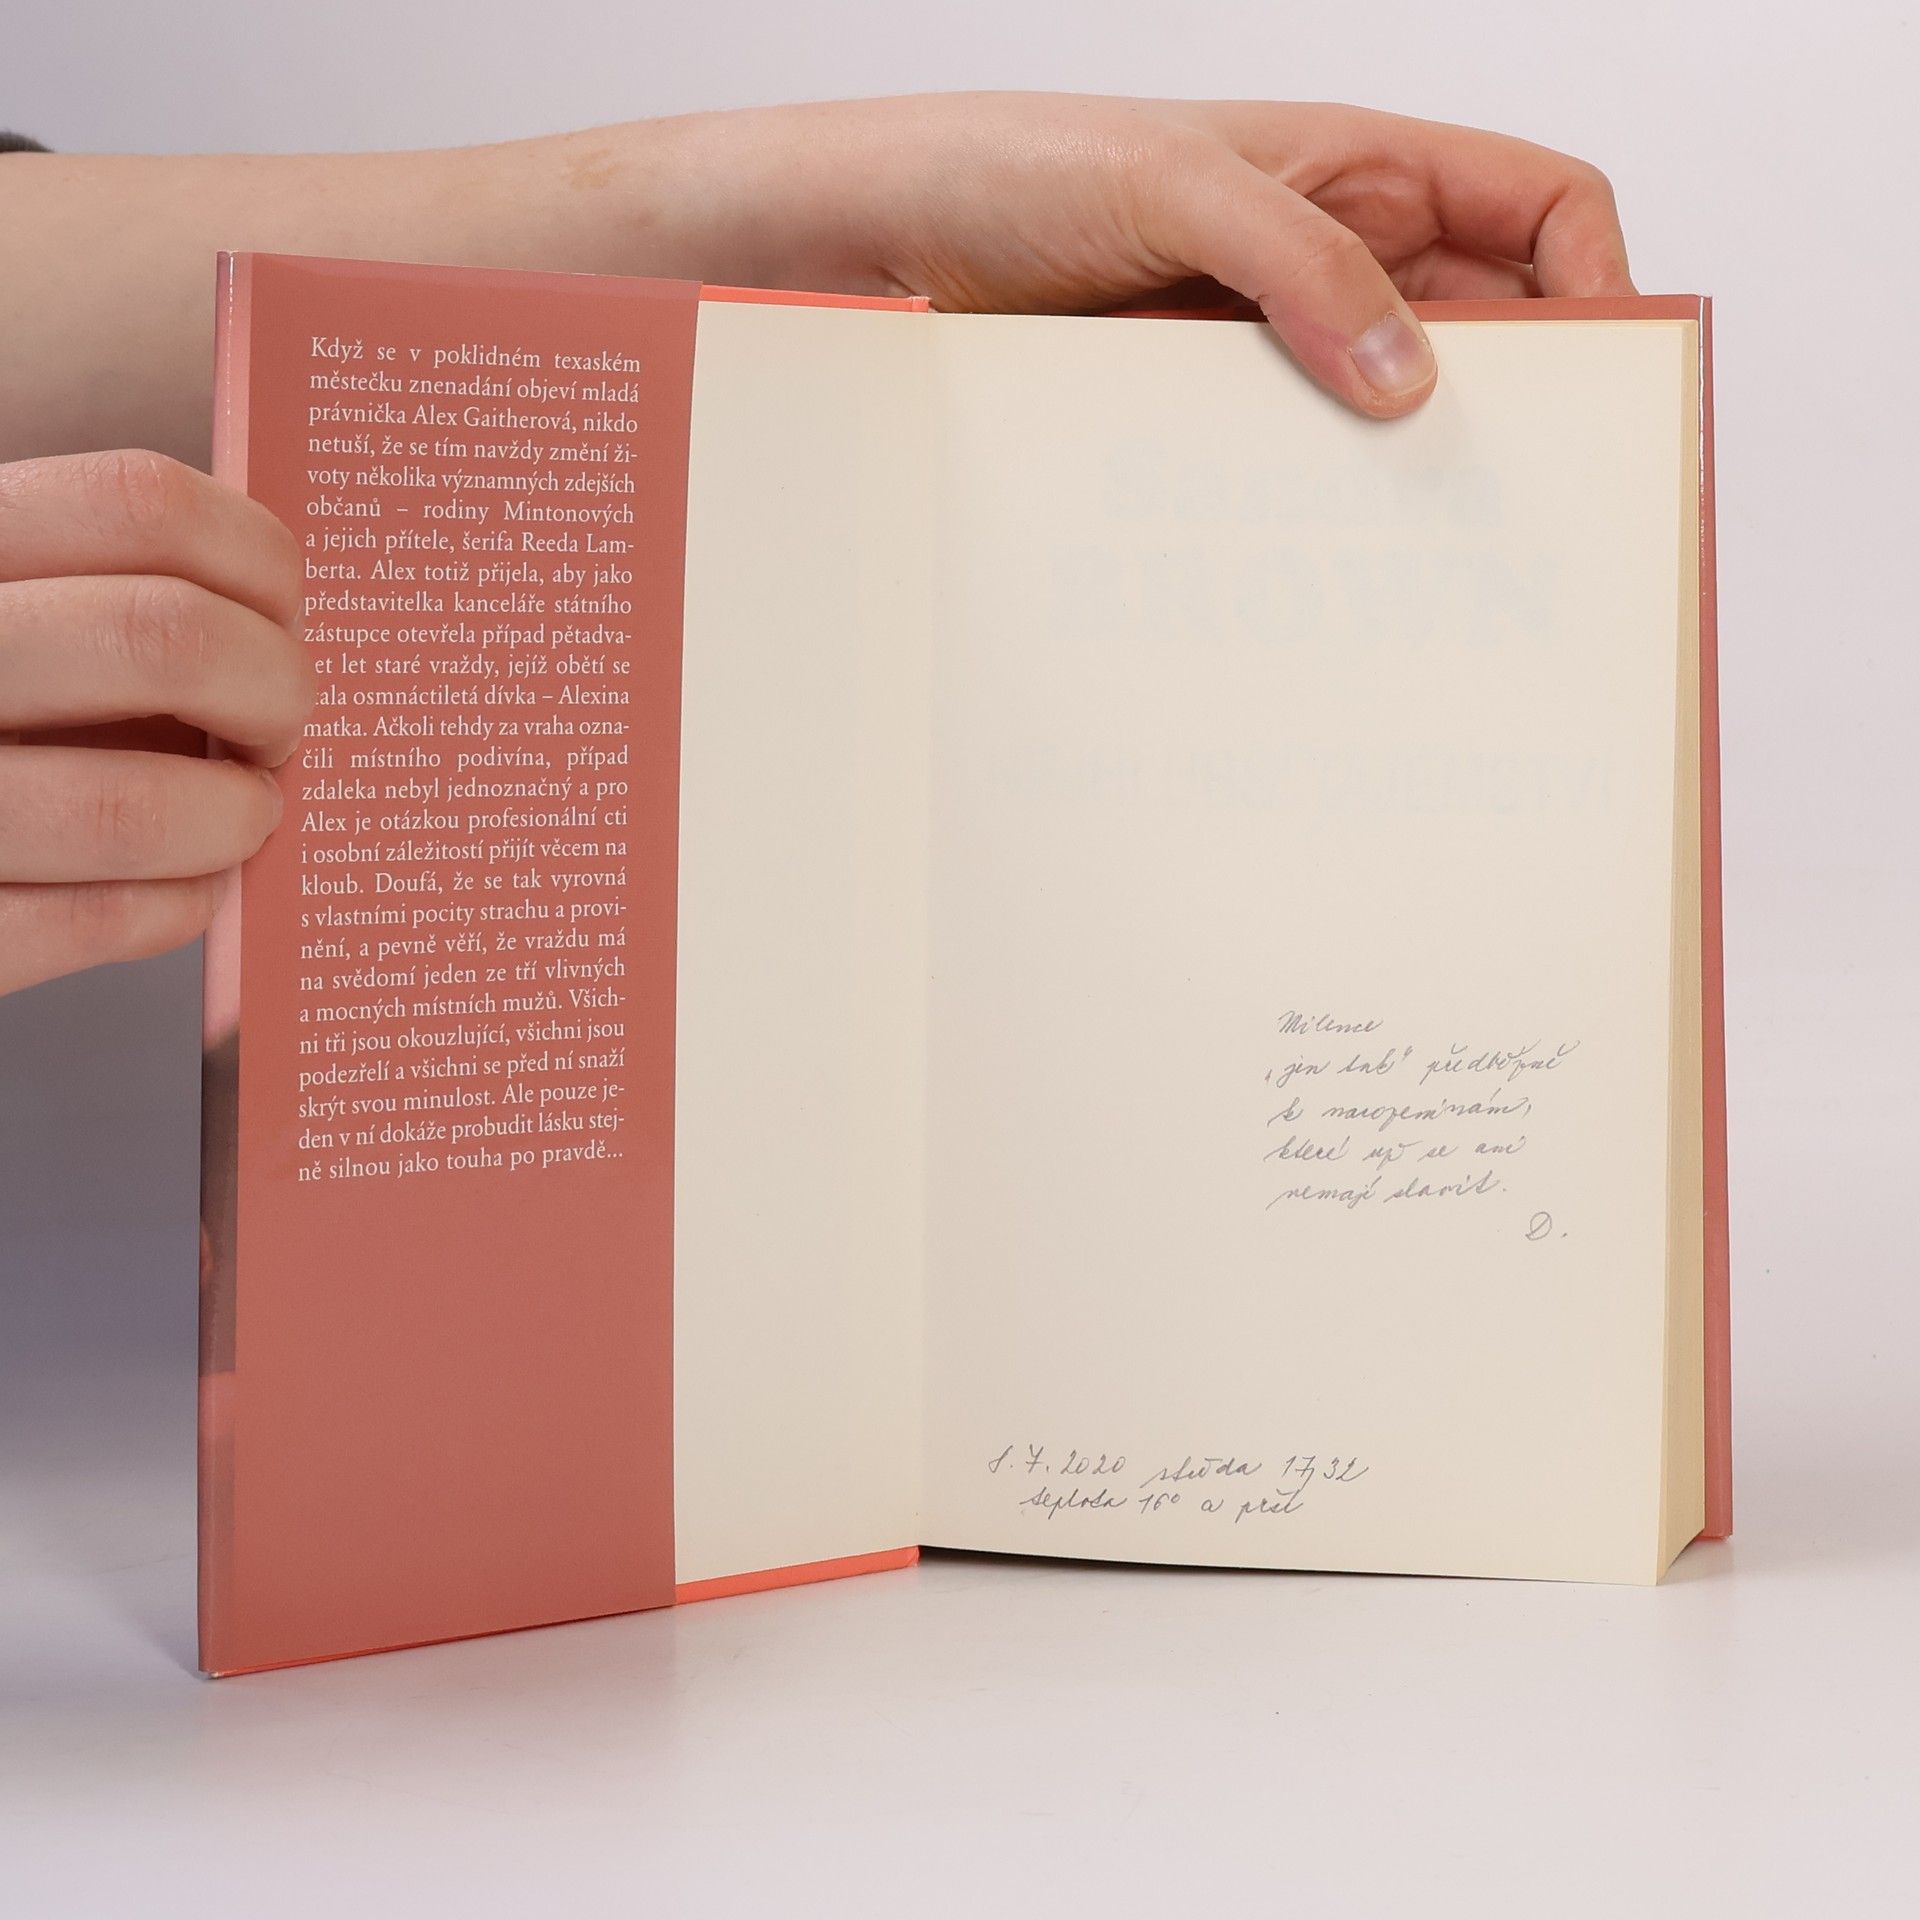 Když se v poklidném texaském
městečku znenadání objeví mladá
právnička Alex Gaitherová, nikdo
netuší, že se tím navždy změní ži-
voty několika významných zdejších
občanů – rodiny Mintonových
a jejich přítele, šerifa Reeda Lam-
berta. Alex totiž přijela, aby jako
představitelka kanceláře státního
zástupce otevřela případ pětadva-
et let staré vraždy, jejíž obětí se
tala osmnáctiletá dívka – Alexina
matka. Ačkoli tehdy za vraha ozna-
čili místního podivína, případ
zdaleka nebyl jednoznačný a pro
Alex je otázkou profesionální cti
i osobní záležitostí přijít věcem na
kloub. Doufá, že se tak vyrovná
s vlastními pocity strachu a provi-
nění, a pevně věří, že vraždu má
na svědomí jeden ze tří vlivných
a mocných místních mužů. Všich-
ni tři jsou okouzlující, všichni jsou
podezřelí a všichni se před ní snaží
skrýt svou minulost. Ale pouze je-
den v ní dokáže probudit lásku stej-
ně silnou jako touha po pravdě...
Milence
„jen tak" předběžně
k narozeninám,
které už se ani
nemají slavit.
D.
8. 7. 2020 středa 17,32
teplota 16° a prší